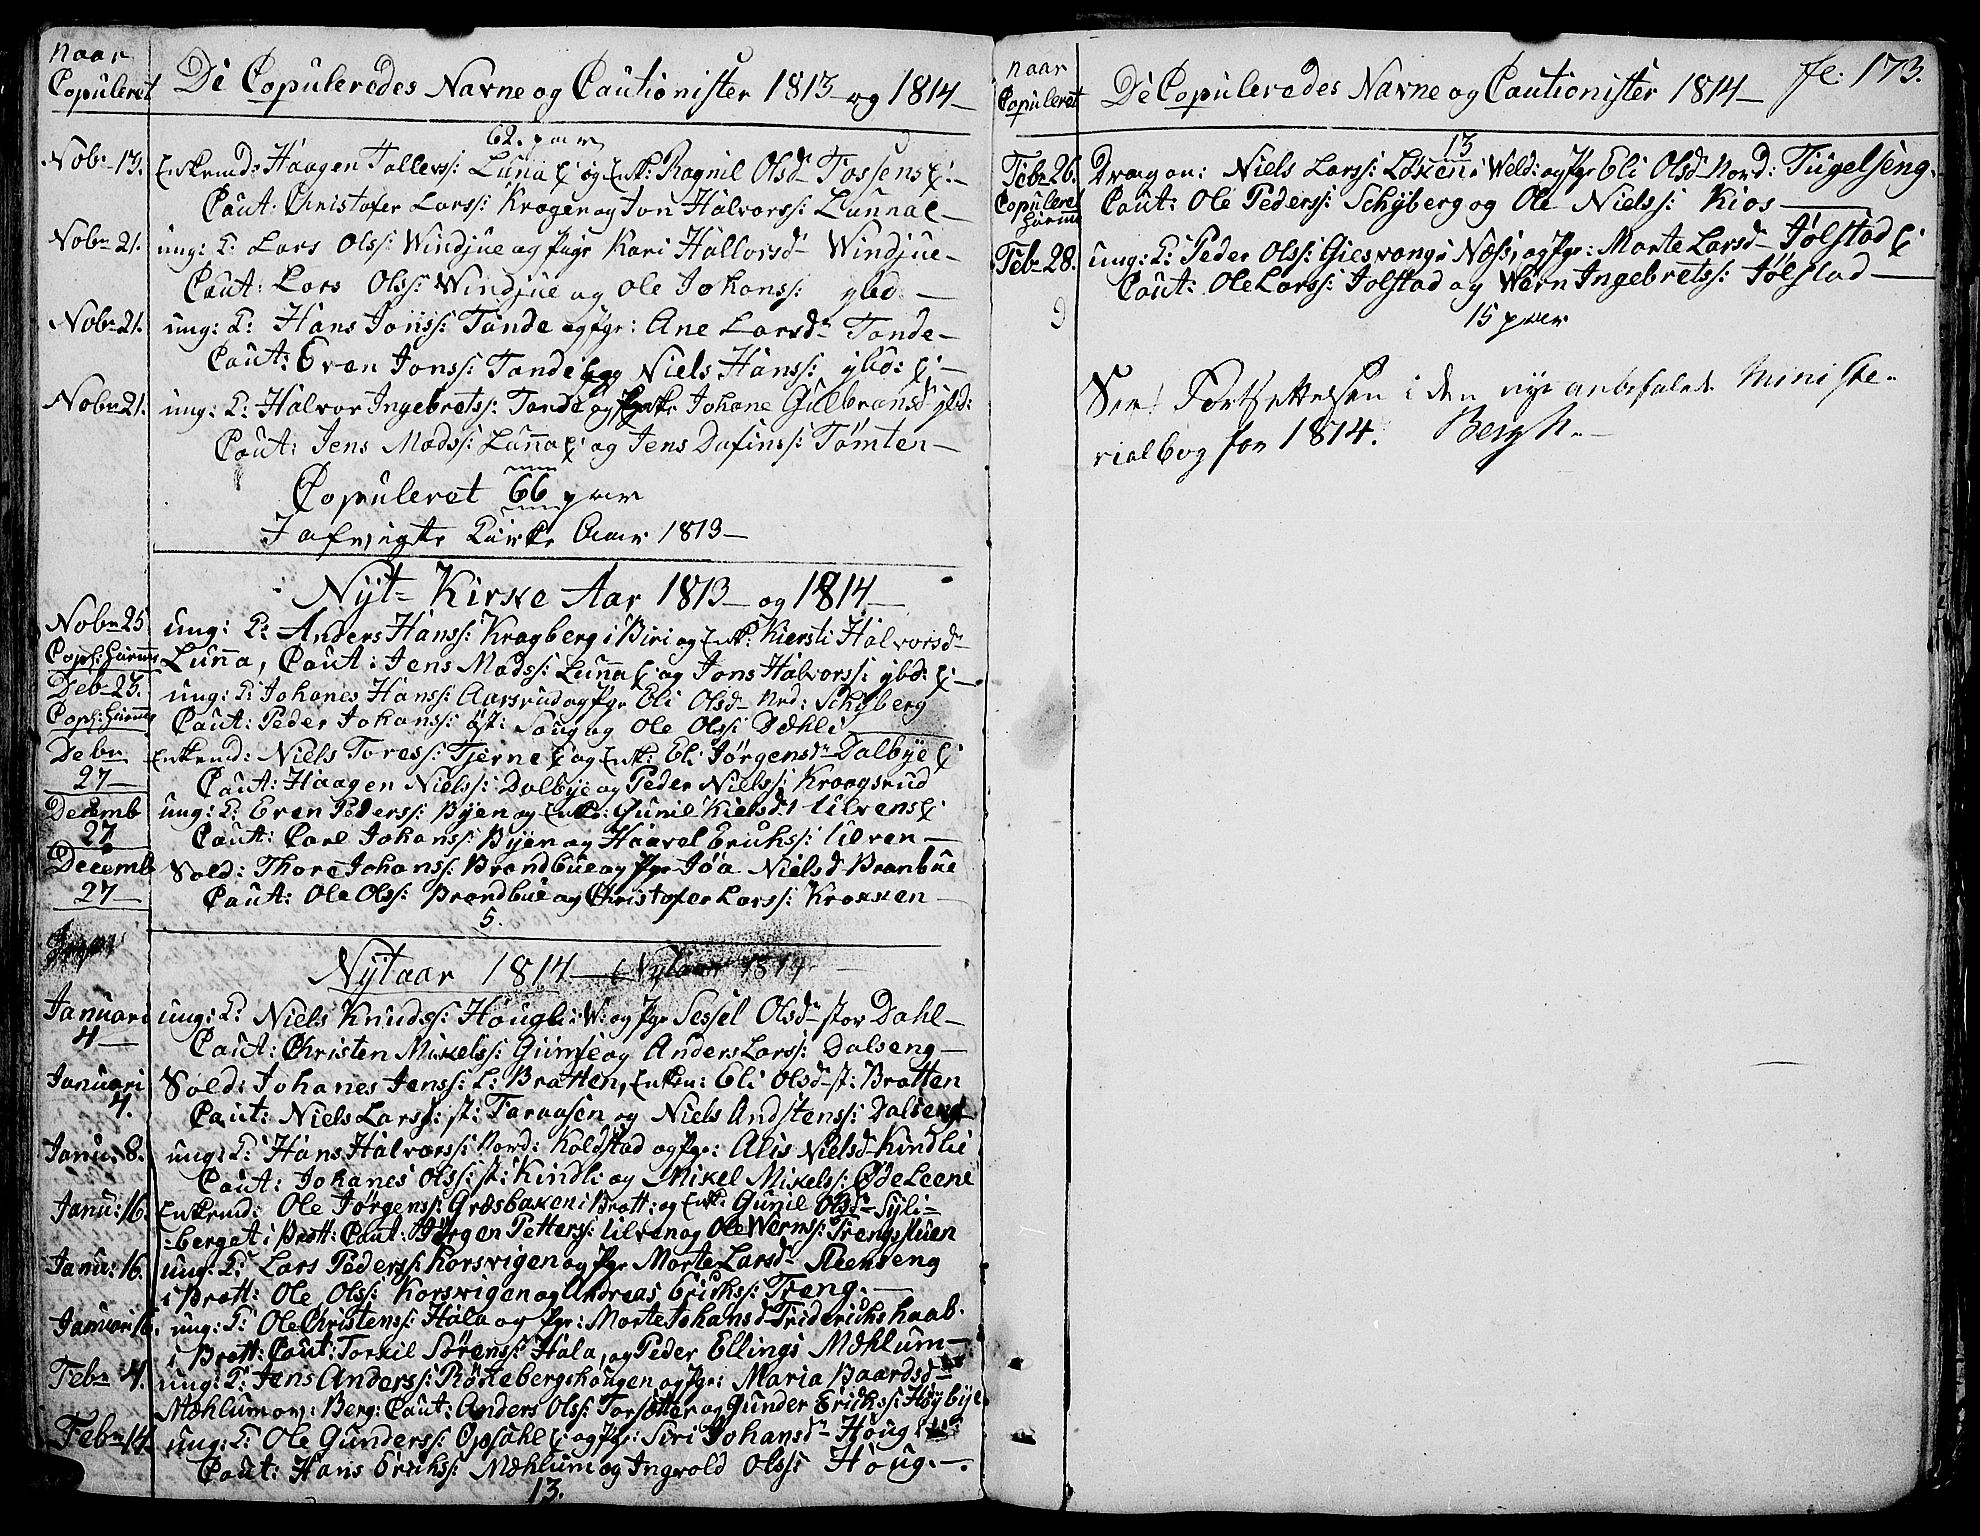 naar
Copuleret
De Copuleredes Navne og Cautionister 1813 og 1814
62. paar
Nobr 13. Enkemd: Haagen Tollers: Lunna Ej og Enk: Ragnil Olsd Tossens Ej.
Caut: Christofer Lars: Kragen og Jon Halvors: Lunna E
Nobr 21. ung: K: Lars Ols: Windjue og Pige Kari Hallvorsd Windjue
Caut: Lars Ols: Windjue og Ole Johans: ybd:
Nobr 21. ung: K: Hans Jons: Tande og Pge: Ane Larsd Tande
Caut: Even Jons: Tande Ej og Niels Hans: ybd: Ej
Nobr 21. ung: K: Halvor Ingebrets: Tande og Enke Johane Gulbransd ybd:
Caut: Jens Mads: Lunna Ej og Jens Dafins: Tömten
Copuleret 66 paar
I afvigte Kirke Aar 1813
Nyt Kirke Aar 1813 og 1814
Nobr 25 ung: K: Anders Hans: Kragberg i Biri og Enk: Kiersti Halvorsd
Lunna, Caut: Jens Mads: Lunna Ej og Jons Halvors: ybd: Ej
Debr 23. ung: K: Johanes Hans: Aarsrud og Pge Eli Olsd Nrd: Schyberg
Caut: Peder Johans: öst: Soug og Ole Ols: Dæhli
Debr
27 Enkemd: Niels Tores: Tjerne Ej og Enk: Eli Jørgensd Dalbye Ej
Caut: Haagen Niels: Dalbye og Peder Niels: Kraagsrud
Decemb
27 ung: K: Even Peders: Byen og Enke: Gunil Kielsd Ulvens Ej
Caut: Carl Johans: Byen og Haavel Ericks: Ulven
Decemb
27 Sold: Thore Johans: Brandbue og Pge Jöa Nielsd Branbue
Caut: Ole Ols: Brandbue og Christofer Lars: Kraxken
5.
Nytaar 1814
Januari
4 ung: K: Niels Knuds: Hougli: W: og Pge Sessel Olsd stor Dahl
Caut: Christen Mikels: Gumse og Anders Lars: Dalseng
Januari
4. Sold: Johanes Jens: L: Bratten, Enken: Eli Olsd st: Bratten
Caut: Niels Lars: st: Taraasen og Niels Andstens: Dalseng
Janu: 8. ung: K: Hans Halvors: Nord: Kolstad og Pge: Alis Nielsd Kindlie
Caut: Johanes Ols: st: Kindli og Mikel Mikels: Øde Leene
Janu: 16. Enkemd: Ole Jørgens: Græsbaken i Brøtt: og Enk: Gunil Olsd Syli=
:berget i Brøtt: Caut: Jörgen Petters: Ulven og Ole Werms: Trengstuen
Janu: 16. ung: K: Lars Peders: Korsvigen og Pge Marte Larsd Steenseng
i Brøtt: Ole Ols: Korsvigen og Andreas Ericks: Træng.
Januari 16. ung: K: Ole Christens: Hala og Pge: Marte Johansd Friderichshaab.
i Brøtt: Caut: Torkil Sörens: Hala, og Peder Ellings Mæhlum
Febr 4. ung: K: Jens Anders: Röstebergshougen og Pge: Maria Baardsd
Mæhlum Berg: Caut: Anders Ols: Torsætter og Gunder Ericks: Höybye
Febr 14. ung: K: Ole Gunders: Opsahl Ej og Pge: Siri Johansd Houg
Caut: Hans Ericks: Mæhlum og Ingvold Ols: Houg.
13.
naar
Copuleret
De Copuleredes Navne og Cautionister 1814
fl: 173.
13
Febr 26. Dragon: Niels Lars: Löken i Weld: og Pge Eli Olsd Nord: Tugelseng.
Copuleret Caut: Ole Peders: Schyberg og Ole Niels: Kios
Febr 28. ung: K: Peder Ols: Giesvang i Næs, og Pge: Marte Larsd Jölstad Ej
Caut: Ole Lars: Jolstad og Warn Ingebrets: Jölstad
15 paar
See Fortsættelsen i den nye anbefalede Ministe-
rialbog for 1814. Bergh.